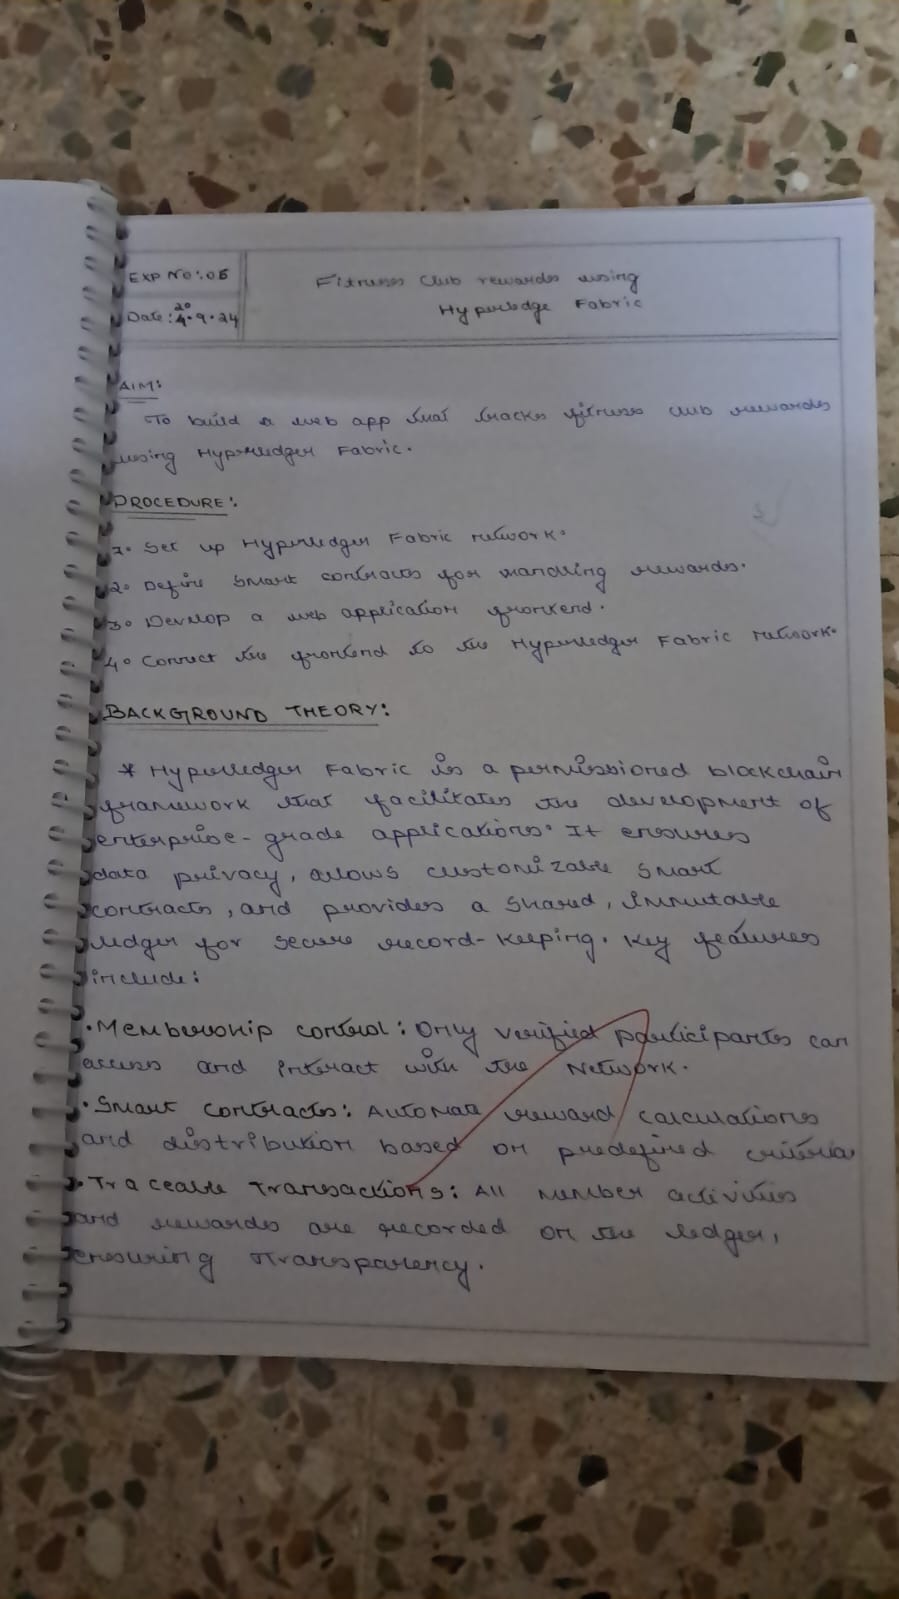 EXP NO:06
Fitness Club rewards using
Hyperledge Fabric
Date: 20.9.24
AIM:
To build a web app that tracks fitness club rewards
using Hyperledger Fabric.
PROCEDURE:
1. Set up Hyperledger Fabric network.
2. Define smart contracts for handling rewards.
3. Develop a web application frontend.
4. Connect the frontend to the Hyperledger Fabric network.
BACKGROUND THEORY:
* Hyperledger Fabric is a permissioned blockchain
framework that facilitates the development of
enterprise-grade applications. It ensures
data privacy, allows customizable smart
contracts, and provides a shared, immutable
ledger for secure record-keeping. Key features
include:
• Membership control: Only verified participants can
access and interact with the Network.
• Smart contracts: Automate reward calculations
and distribution based on predefined criteria
• Traceable Transactions: All member activities
and rewards are recorded on the ledger,
ensuring transparency.